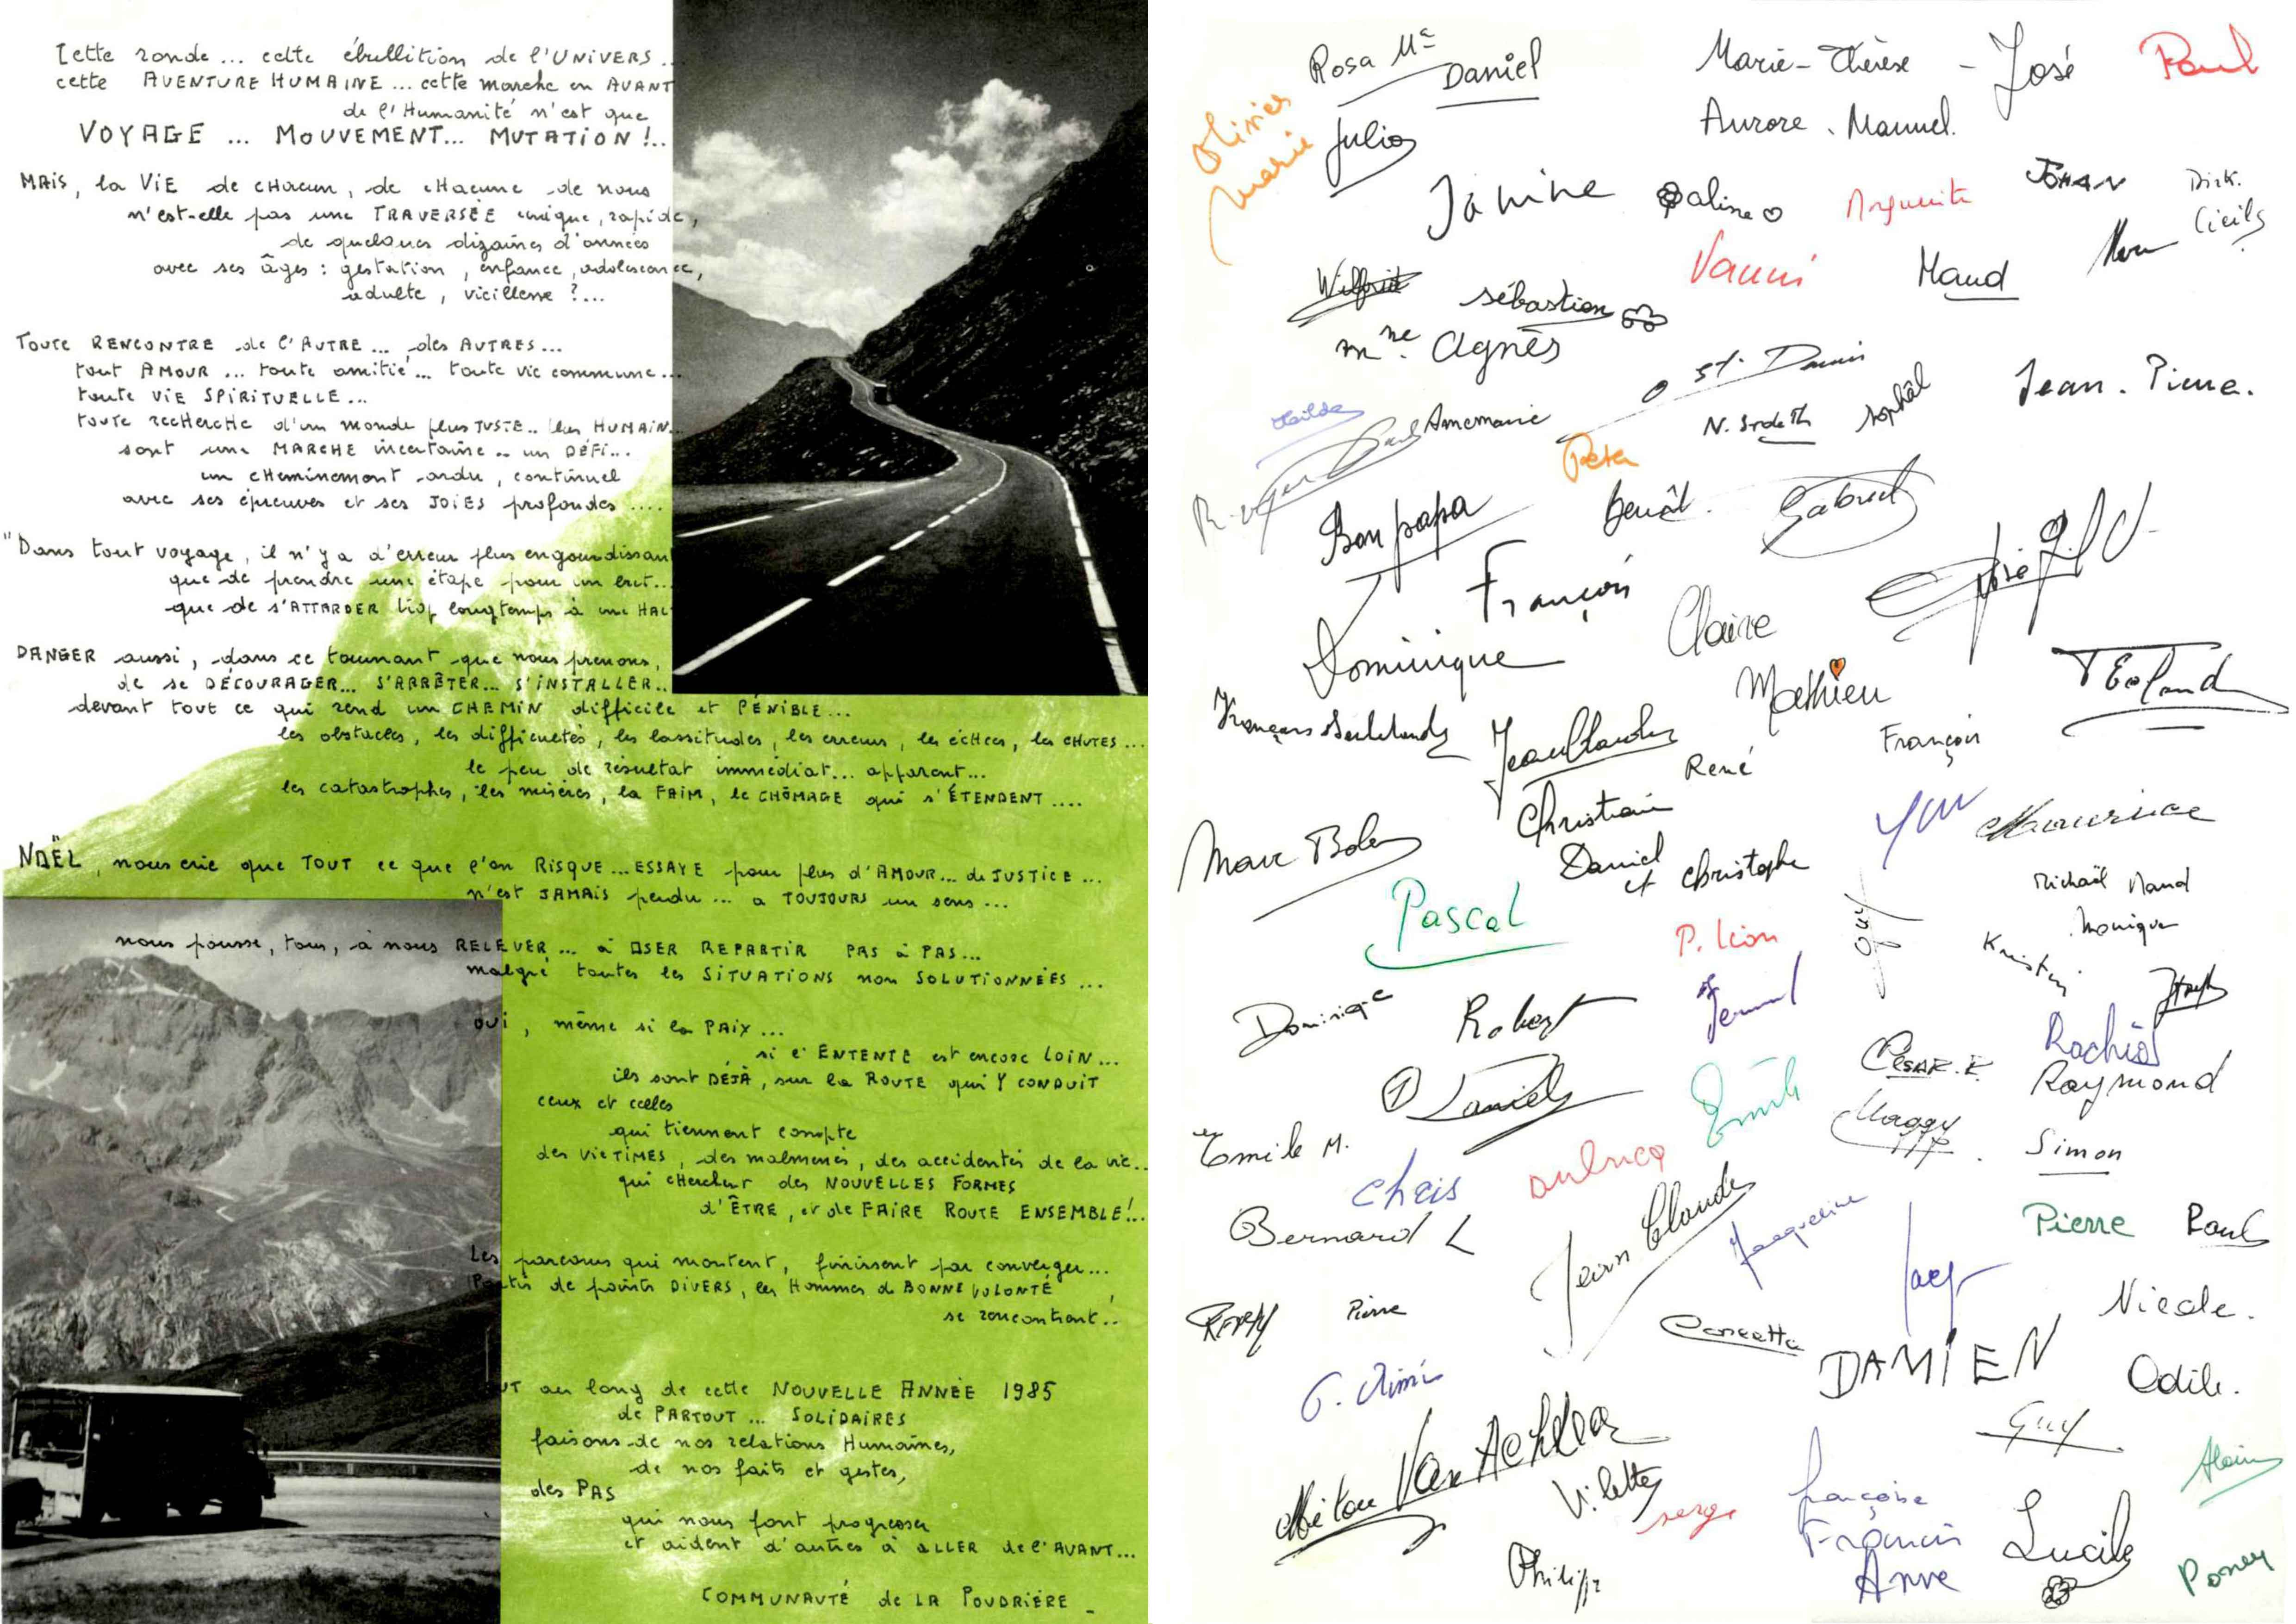 Cette ronde ... cette ébullition de l'UNIVERS ..
cette AVENTURE HUMAINE ... cette marche en AVANT
de l'Humanité n'est que
VOYAGE ... MOUVEMENT... MUTATION !..
MAIS, la VIE de CHACUN, de CHACUNE de nous
n'est-elle pas une TRAVERSÉE unique, rapide,
de quelques dizaines d'années
avec ses âges : gestation, enfance, adolescence,
adulte, vieillesse ?...
TOUTE RENCONTRE de l'AUTRE ... des AUTRES ...
tout AMOUR ... toute amitié ... toute vie commune ...
toute VIE SPIRITUELLE ...
toute recHercHe d'un monde plus JUSTE .. plus HUMAIN...
sont une MARCHE incertaine .. un DÉFI...
un cHeminement ardu, continuel
avec ses épreuves et ses JOIES profondes ....
"Dans tout voyage, il n'y a d'erreur plus engourdissan
que de prendre une étape pour un but...
que de s'ATTARDER trop longtemps à une HAL
DANGER aussi, dans ce tournant que nous prenons,
de se DÉCOURAGER... S'ARRÊTER... S'INSTALLER..
devant tout ce qui rend un CHEMIN difficile et PÉNIBLE...
les obstacles, les difficultés, les lassitudes, les erreurs, les écHecs, les CHUTES ...
le peu de résultat immédiat ... apparent...
les catastrophes, les misères, la FAIM, le CHÔMAGE qui s'ÉTENDENT ....
NOËL, nous crie que TOUT ce que l'on RISQUE ... ESSAYE pour plus d'AMOUR... de JUSTICE ...
n'est JAMAIS perdu ... a TOUJOURS un sens ...
nous pousse, tous, à nous RELEVER ... à OSER REPARTIR PAS à PAS...
malgré toutes les SITUATIONS non SOLUTIONNÉES ...
OUI, même si la PAIX ...
si l'ENTENTE est encore LOIN ...
ils sont DÉJÀ, sur la ROUTE qui Y CONDUIT
ceux et celles
qui tiennent compte
des VICTIMES, des malmenés, des accidentés de la vie..
qui cHerchent des NOUVELLES FORMES
d'ÊTRE, et de FAIRE ROUTE ENSEMBLE !..
Les parcours qui montent, finissent par converger...
Partis de points DIVERS, les Hommes de BONNE VOLONTÉ,
se rencontrent..
UT au long de cette NOUVELLE ANNÉE 1985
de PARTOUT ... SOLIDAIRES
faisons de nos relations Humaines,
de nos faits et gestes,
des PAS
qui nous font progresser
et aident d'autres à ALLER de l'AVANT...
COMMUNAUTÉ de LA POUDRIÈRE -
Rosa Mª
Daniel
Marie-Thérèse - José
Paul
Olivier
Marie
Julio
Aurore . Manuel.
Janine
Paline
Arguenita
JOHAN
Dirk.
Cicils
Wilfried
sébastien
Vanni
Maud
mme. Agnès
St. Denis
Jean. Pierre.
Annemarie
Peter
N. Srdeth
sophâl
Bon papa
Benoît.
Gabriel
François
José
Dominique
Claire
Mathieu
Jean Claude
René
François
Marc
Christian
Maurice
Daniel
et christophe
Pascal
P. Léon
guy
Michaël Maud
Monique
Kristin
Dominiqe
Robert
Rachid
Daniel
Emile
CESAR. E.
Raymond
Emile M.
Maggy
Simon
Chris
Bernard L
Jean Claude
Jacqueline
Pierre
Raul
Pierre
Jacq
Nicole.
Concetta
DAMIEN
Odile.
Guy
Van Achter
V. lette
serge
françoise
Francis
Anne
Alain
Lucile
Philipp
Poney